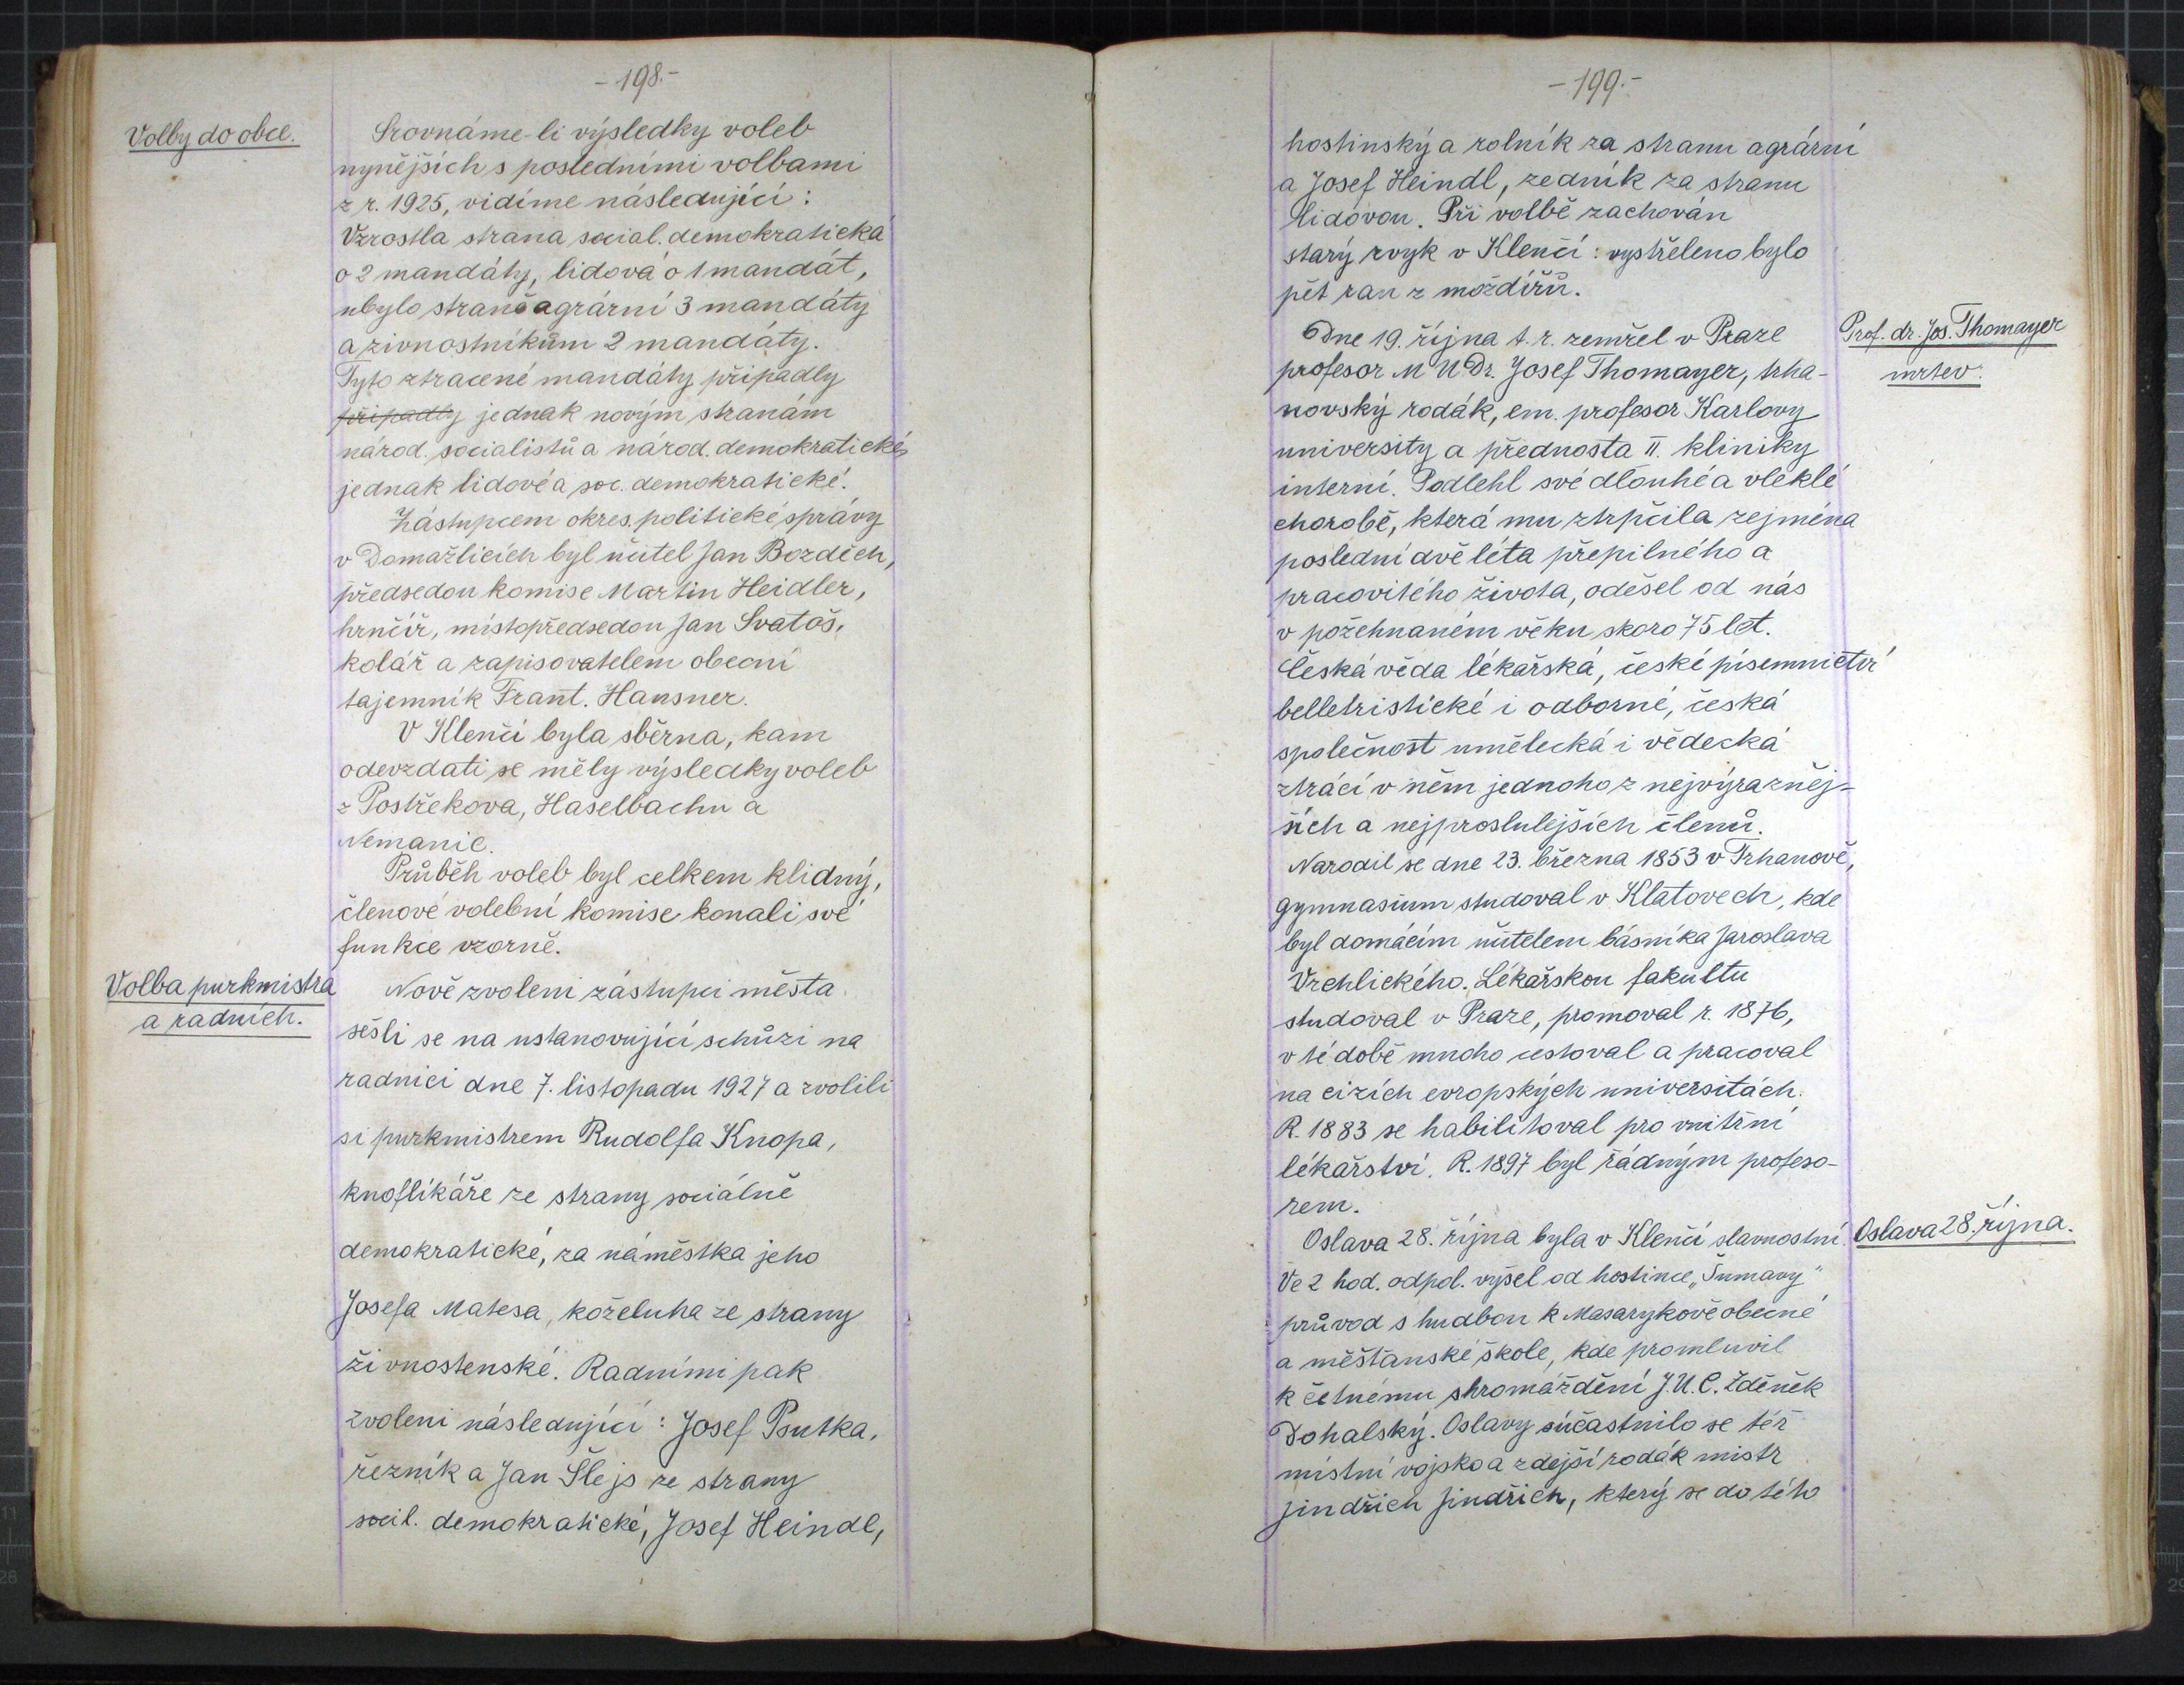 -198.-
Volby do obce.
Srovnáme-li výsledky voleb
nynějších s posledními volbami
z r. 1925, vidíme následující:
Vzrostla strana social. demokratická
o 2 mandáty, lidová o 1 mandát,
ubylo straně agrární 3 mandáty
a živnostníkům 2 mandáty.
Tyto ztracené mandáty připadly
připadly jednak novým stranám
národ. socialistů a národ. demokratické,
jednak lidové a soc. demokratické.
Zástupcem okres. politické správy
v Domažlicích byl učitel Jan Bozděch,
předsedou komise Martin Heidler,
hrnčíř, místopředsedou Jan Svatoš,
kolář a zapisovatelem obecní
tajemník Frant. Hausner.
V Klenčí byla sběrna, kam
odevzdati se měly výsledky voleb
z Postřekova, Haselbachu a
Nemanic.
Průběh voleb byl celkem klidný,
členové volební komise konali své
funkce vzorně.
Volba purkmistra
a radních.
Nově zvolení zástupci města
sešli se na ustanovující schůzi na
radnici dne 7. listopadu 1927 a zvolili
si purkmistrem Rudolfa Knopa,
knoflíkáře ze strany sociálně
demokratické, za náměstka jeho
Josefa Matesa, koželuha ze strany
živnostenské. Radními pak
zvoleni následující: Josef Psutka,
řezník a Jan Šlejs ze strany
socil. demokratické, Josef Heindl,
-199.-
hostinský a rolník za stranu agrární
a Josef Heindl, zedník za stranu
lidovou. Při volbě zachován
starý zvyk v Klenčí: vystřeleno bylo
pět ran z moždířů.
Prof. dr. Jos. Thomayer
mrtev.
Dne 19. října t. r. zemřel v Praze
profesor MUDr. Josef Thomayer, trha-
novský rodák, em. profesor Karlovy
university a přednosta II. kliniky
interní. Podlehl své dlouhé a vleklé
chorobě, která mu ztrpčila zejména
poslední dvě léta přepilného a
pracovitého života, odešel od nás
v požehnaném věku skoro 75 let.
Česká věda lékařská, české písemnictví
belletristické i odborné, česká
společnost umělecká i vědecká
ztrácí v něm jednoho z nejvýrazněj-
ších a nejproslulejších členů.
Narodil se dne 23. března 1853 v Trhanově,
gymnasium studoval v Klatovech, kde
byl domácím učitelem básníka Jaroslava
Vrchlického. Lékařskou fakultu
studoval v Praze, promoval r. 1876,
v té době mnoho cestoval a pracoval
na cizích evropských universitách.
R. 1883 se habilitoval pro vnitřní
lékařství. R. 1897 byl řádným profeso-
rem.
Oslava 28. října.
Oslava 28. října byla v Klenčí slavnostní.
Ve 2 hod. odpol. vyšel od hostince „Šumavy"
průvod s hudbou k Masarykově obecné
a měšťanské škole, kde promluvil
k četnému shromáždění J.U.C. Zdeněk
Dohalský. Oslavy súčastnilo se též
místní vojsko a zdejší rodák mistr
Jindřich Jindřich, který se do této